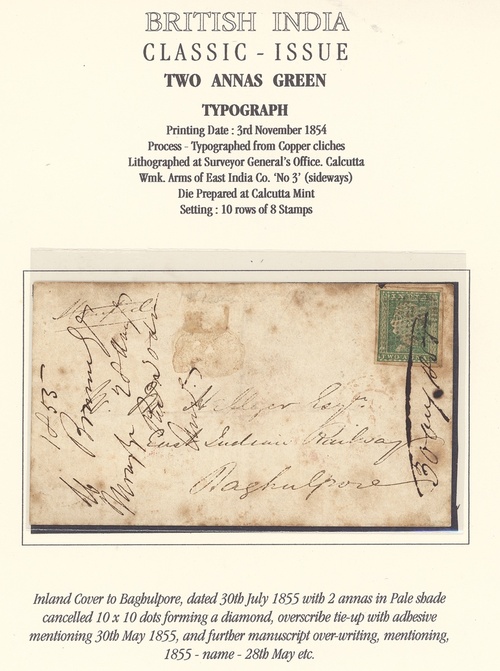 BRITISH INDIA
CLASSIC - ISSUE
TWO ANNAS GREEN
TYPOGRAPH
Printing Date : 3rd November 1854
Process - Typographed from Copper cliches
Lithographed at Surveyor General's Office. Calcutta
Wmk. Arms of East India Co. 'No 3' (sideways)
Die Prepared at Calcutta Mint
Setting : 10 rows of 8 Stamps
TWO ANNAS
1855
Esqr.
East Indian Railway
Baghulpore
Inland Cover to Baghulpore, dated 30th July 1855 with 2 annas in Pale shade
cancelled 10 x 10 dots forming a diamond, overscribe tie-up with adhesive
mentioning 30th May 1855, and further manuscript over-writing, mentioning,
1855 - name - 28th May etc.